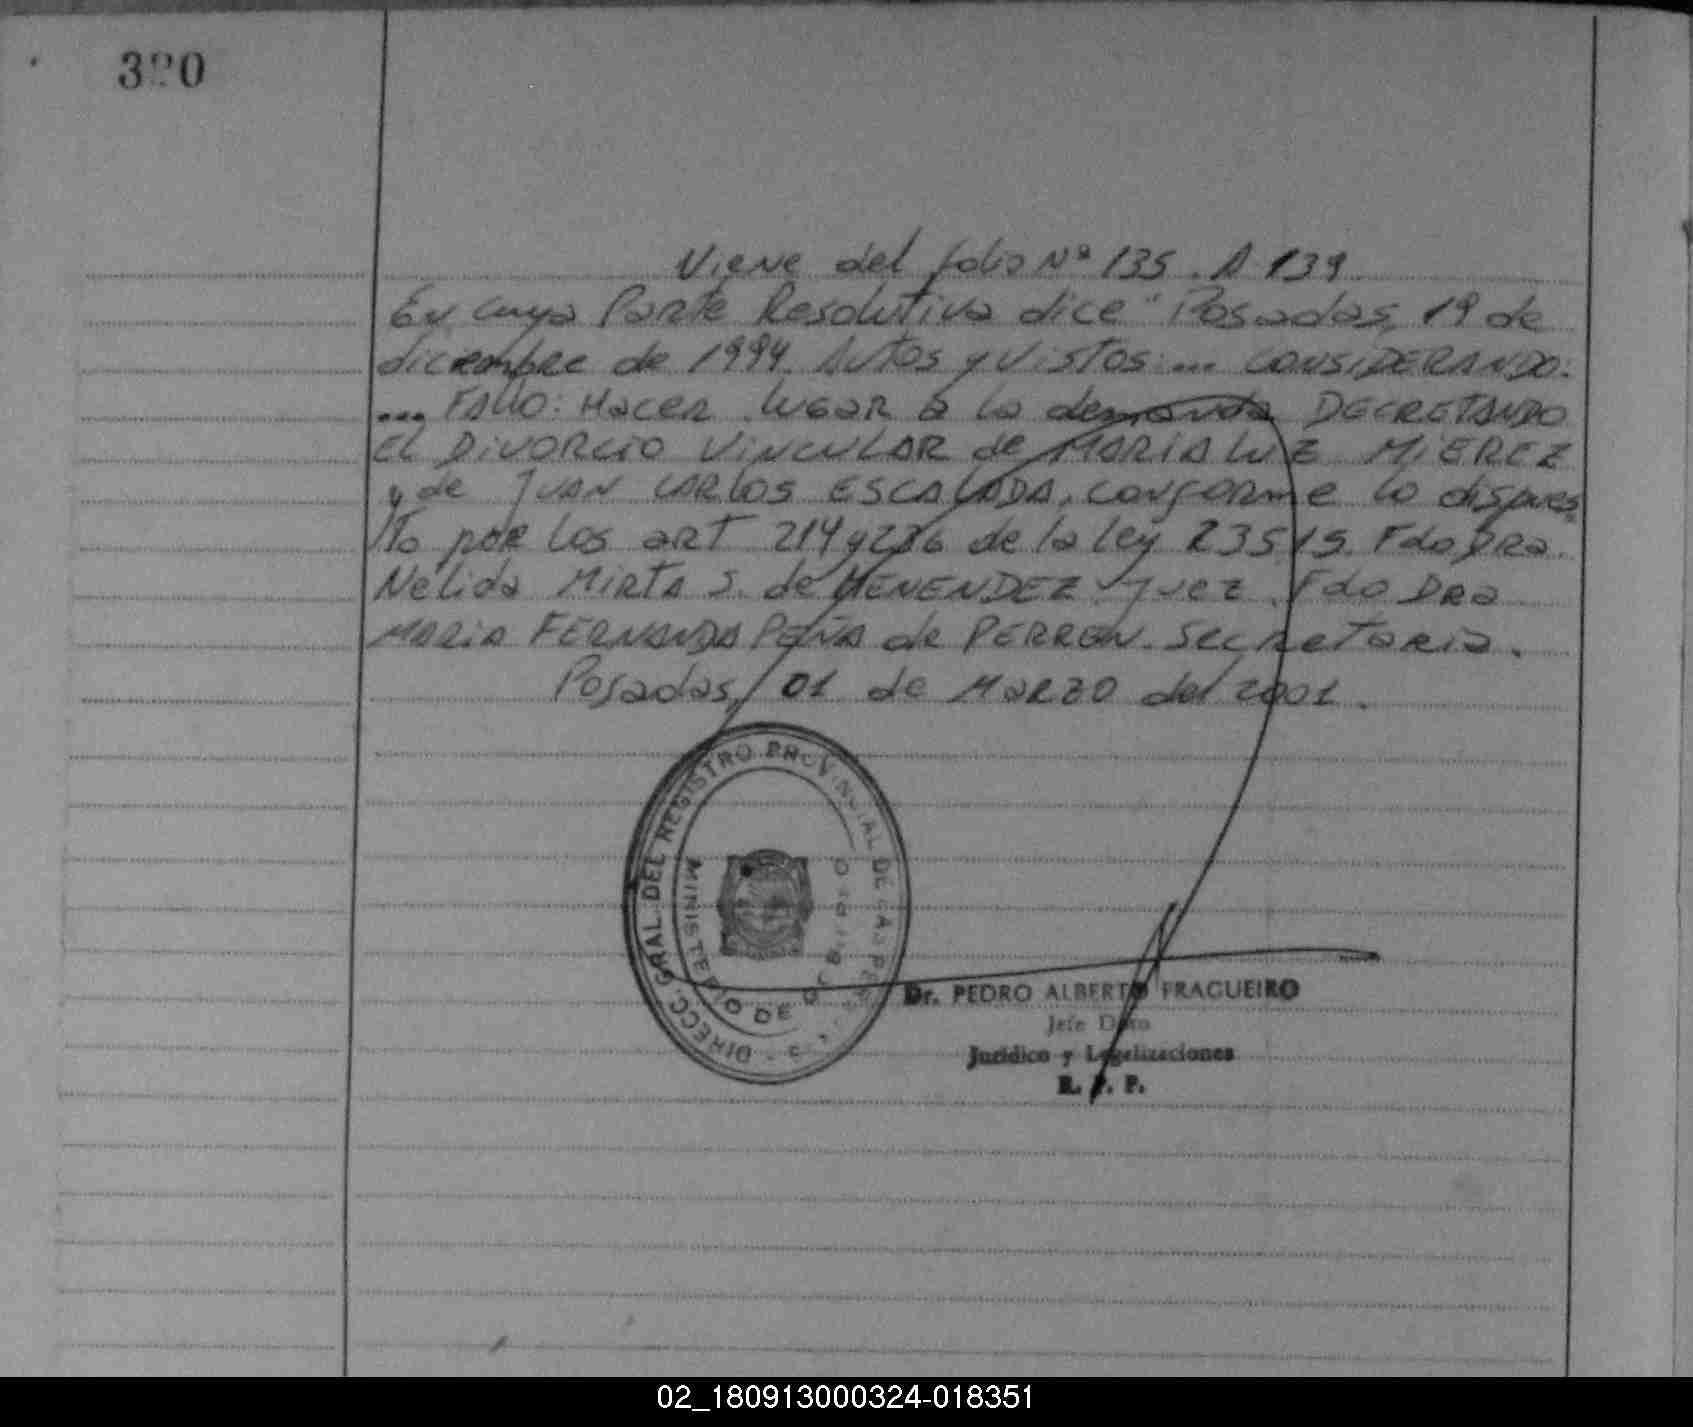 320
Viene del folio Nº 135. A 139.
En cuya Parte Resolutiva dice "Posadas, 19 de
diciembre de 1994. Autos y Vistos: ... CONSIDERANDO:
... FALLO: Hacer lugar a la demanda DECRETANDO
El DIVORCIO VINCULAR de MARIA LUZ MIEREZ
y de JUAN CARLOS ESCALADA, conforme lo dispues
to por los art 214 y 236 de la ley 23515. Fdo Dra.
Nelida Mirta S. de MENENDEZ. Juez. Fdo Dra
MARIA FERNANDA PEÑA de PERRON. Secretaria.
Posadas, 01 de Marzo del 2001.
DIRECC. GRAL. DEL REGISTRO PROVINCIAL DE LAS PERSONAS
MINISTERIO DE GOBIERNO
Dr. PEDRO ALBERTO FRAGUEIRO
Jefe Dpto
Jurídico y Legalizaciones
R. P. P.
02_180913000324-018351